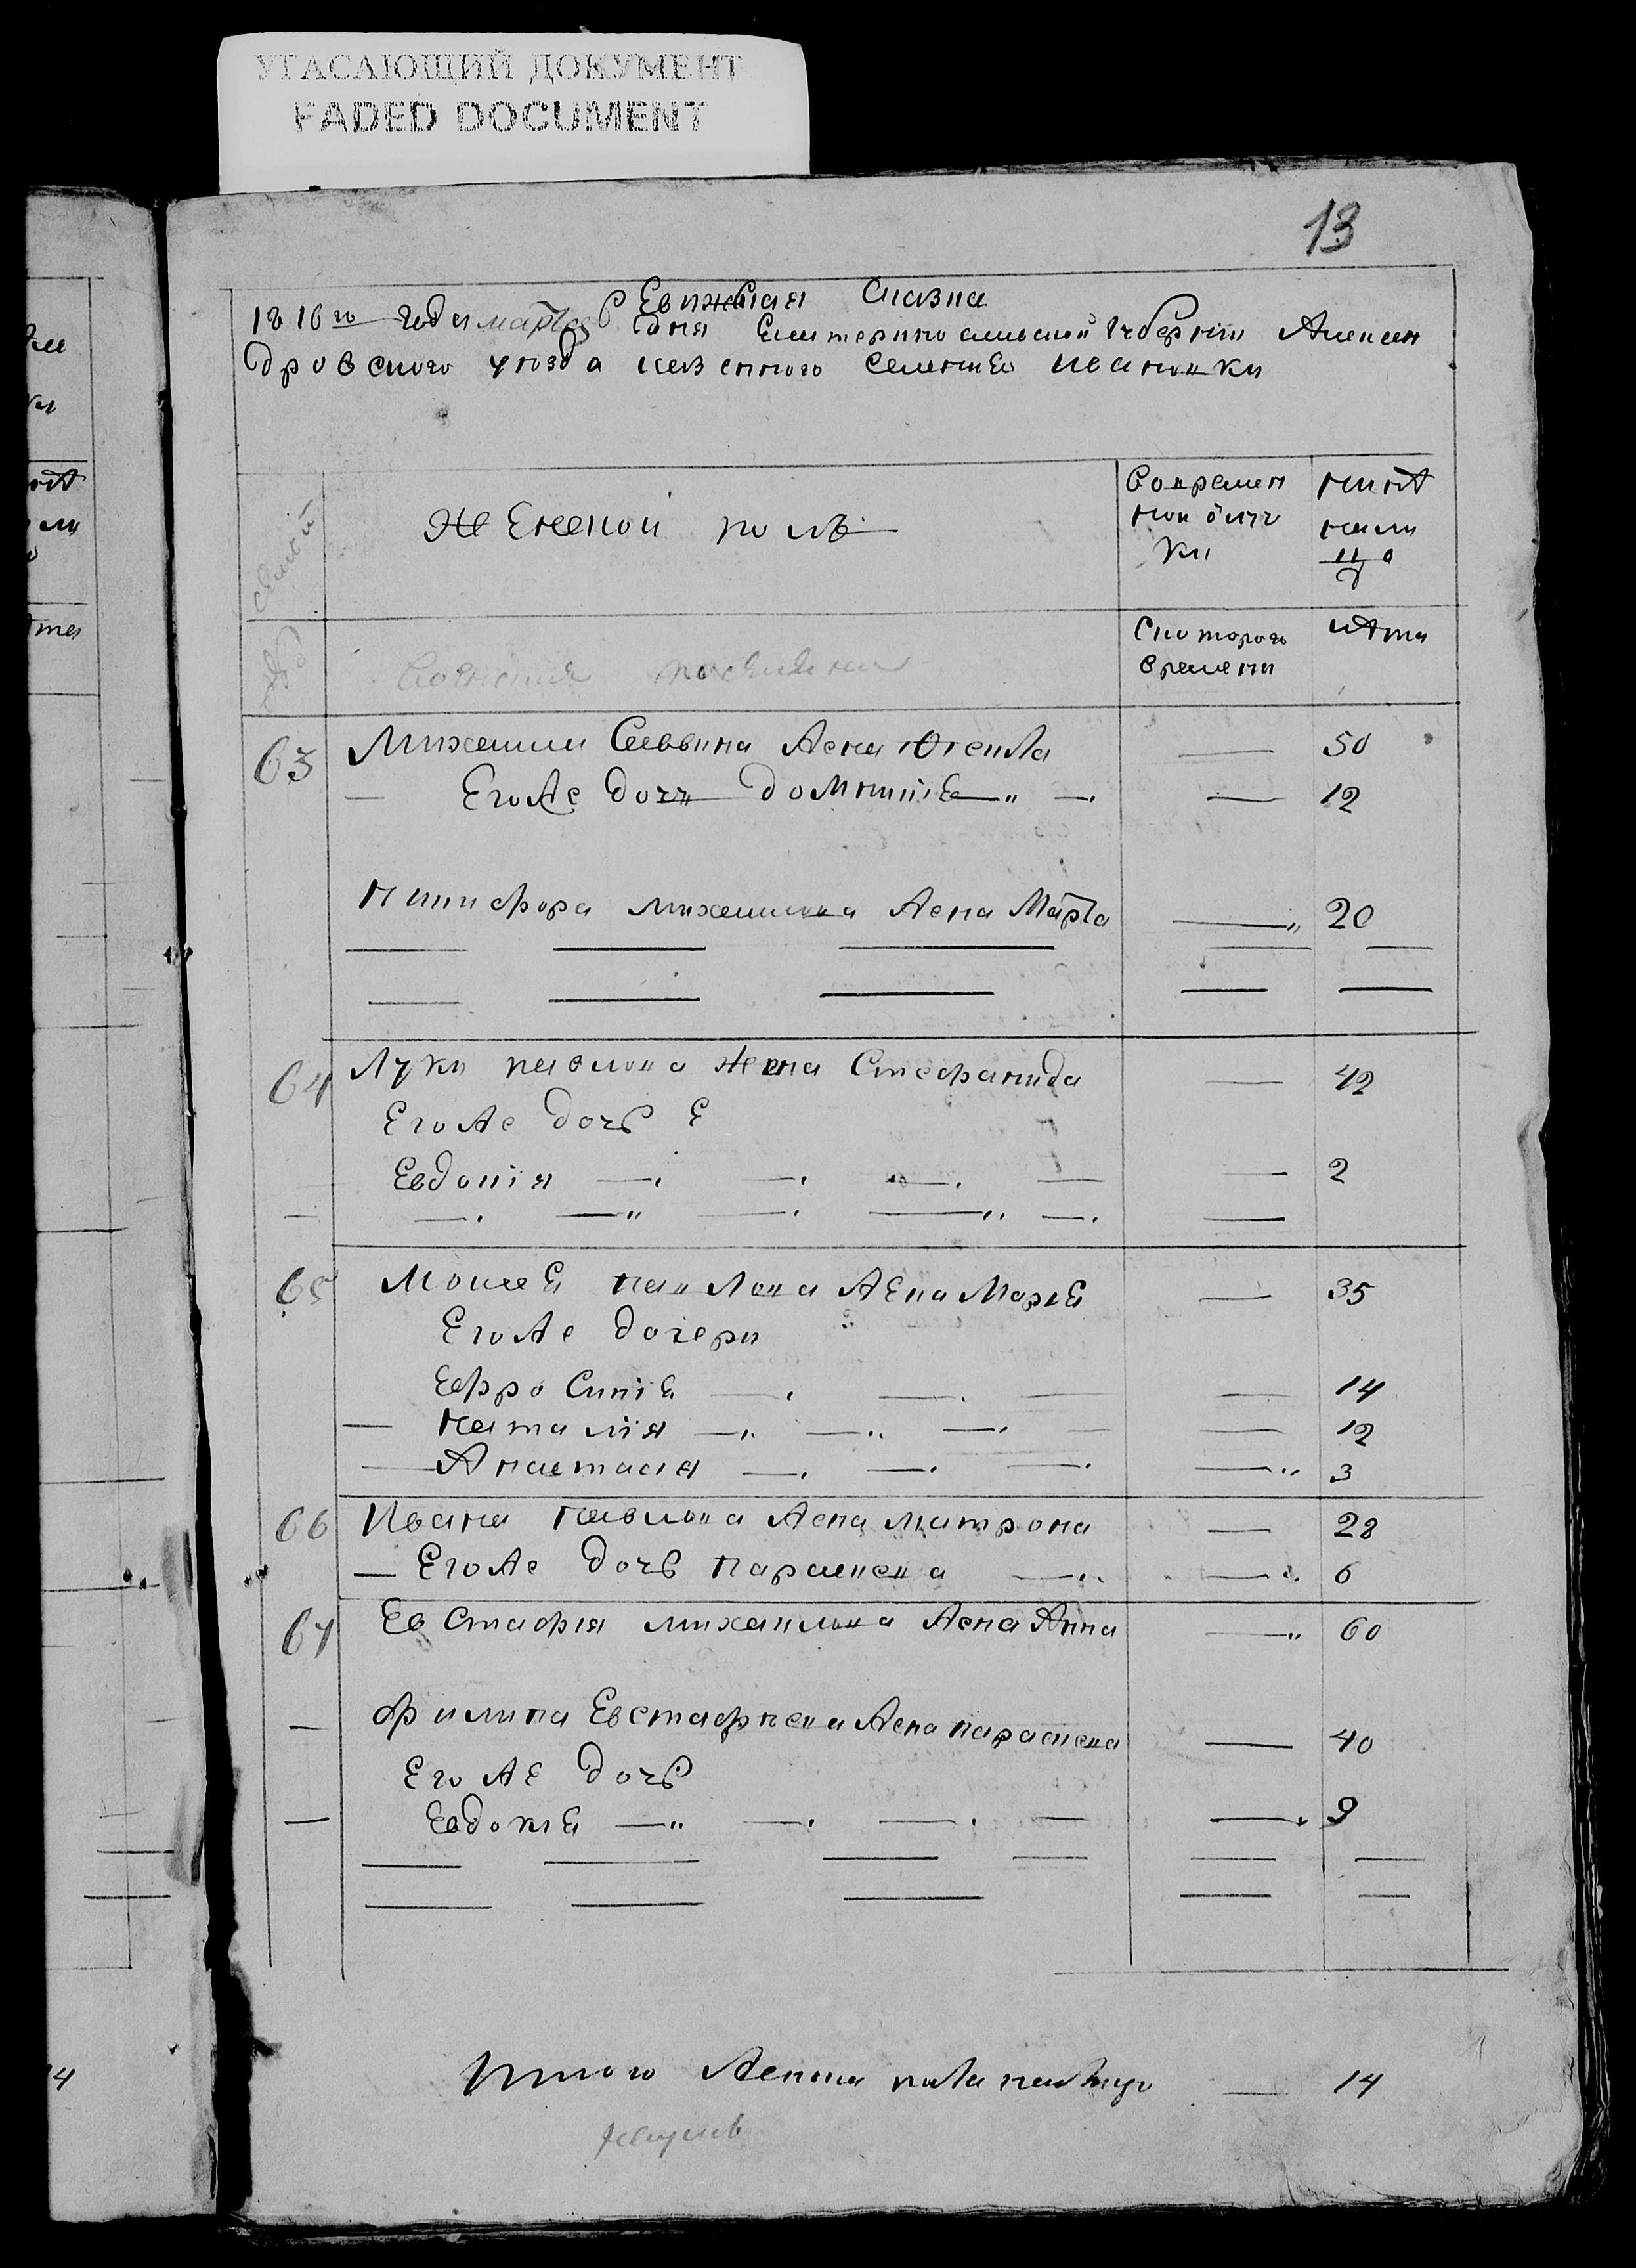 УГАСАЮЩИЙ ДОКУМЕНТ
FADED DOCUMENT
13
Евижская Сказка
1816го года марта дня Екатеринославской губернии Алексан
дровского уезда казенного селения Ивановки
Женской полъ
во времен
ной отлуч
ки
нине
нали
цо
с которого
времени
лета
63 Михаила Саввина жена Фекла — 50
— Егоже дочь Домникия — 12
Никифора Михаилова жена Марфа — 20
64 Луки Павлова жена Стефанида — 42
Егоже дочь Е
Евдокия — 2
65 Моисея Павлова жена Мария — 35
Егоже дочери
Ефросиния — 14
— Наталия — 12
— Анастасия — 3
66 Ивана Павлова жена Матрона — 28
— Егоже дочь Параскева — 6
67 Евстафия Михаилова жена Анна — 60
— Филипа Евстафиева жена Параскева — 40
Егоже дочь
— Евдокия — 9
Итого женска пола налицо — 14